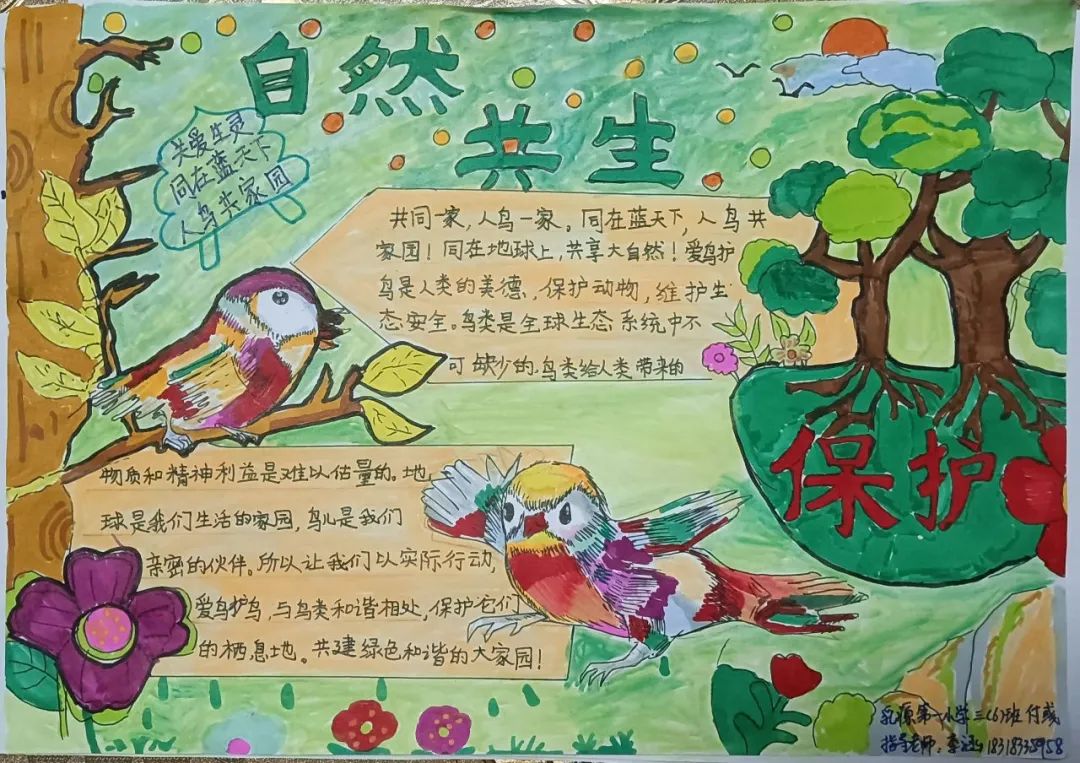 自然
共生
关爱生灵
同在蓝天下
人鸟共家园
共同一家,人鸟一家。同在蓝天下,人鸟共
家园！同在地球上,共享大自然！爱鸟护
鸟是人类的美德,保护动物,维护生
态安全。鸟类是全球生态系统中不
可缺少的.鸟类给人类带来的
保护
物质和精神利益是难以估量的。地
球是我们生活的家园,鸟儿是我们
亲密的伙伴。所以让我们以实际行动,
爱鸟护鸟,与鸟类和谐相处,保护它们
的栖息地。共建绿色和谐的大家园！
乳源第一小学三(6)班 付
指导老师: 李 18318335958